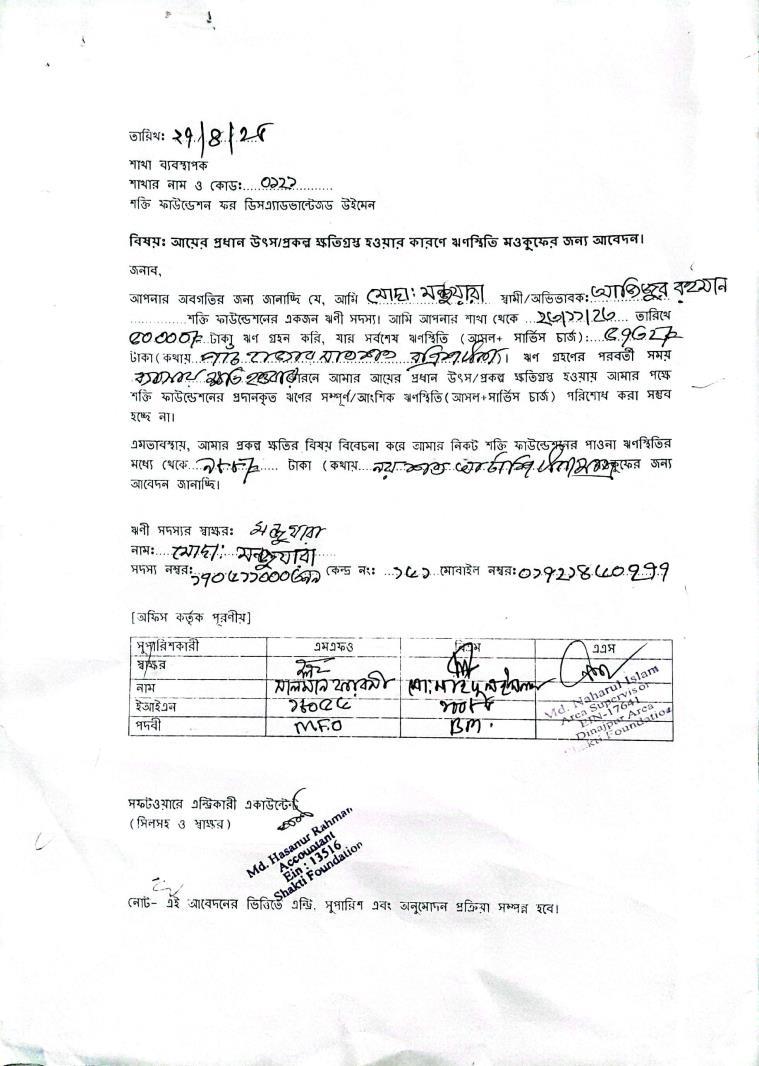 তারিখ: ২৭/৪/২৫
শাখা ব্যবস্থাপক
শাখার নাম ও কোড:.....০১২১............
শক্তি ফাউন্ডেশন ফর ডিসএ্যাডভান্টেজড উইমেন
বিষয়: আয়ের প্রধান উৎস/প্রকল্প ক্ষতিগ্রস্ত হওয়ার কারণে ঋণস্থিতি মওকুফের জন্য আবেদন।
জনাব,
আপনার অবগতির জন্য জানাচ্ছি যে, আমি মোছা: মঞ্জুয়ারা স্বামী/অভিভাবক: আতিজুর রহমান
............শক্তি ফাউন্ডেশনের একজন ঋণী সদস্য। আমি আপনার শাখা থেকে ... তারিখে
৫০০০০/- টাকা ঋণ গ্রহন করি, যার সর্বশেষ ঋণস্থিতি (আসল+ সার্ভিস চার্জ):
টাকা(কথায় পাঁচ হাজার সাতশত বত্রিশ টাকা। ঋণ গ্রহণের পরবর্তী সময়
ব্যবসায় ক্ষতি হওয়ার কারনে আমার আয়ের প্রধান উৎস/প্রকল্প ক্ষতিগ্রস্ত হওয়ায় আমার পক্ষে
শক্তি ফাউন্ডেশনের প্রদানকৃত ঋণের সম্পূর্ণ/আংশিক ঋণস্থিতি(আসল+সার্ভিস চার্জ) পরিশোধ করা সম্ভব
হচ্ছে না।
এমতাবস্থায়, আমার প্রকল্প ক্ষতির বিষয় বিবেচনা করে আমার নিকট শক্তি ফাউন্ডেশনের পাওনা ঋণস্থিতির
মধ্যে থেকে ৯৮৮/- টাকা (কথায় নয় শত আটাশি টাকা মওকুফের জন্য
আবেদন জানাচ্ছি।
ঋণী সদস্যর স্বাক্ষর: মঞ্জুয়ারা
নাম: মোছা: মঞ্জুয়ারা
সদস্য নম্বর: কেন্দ্র নং: ১৫১ মোবাইল নম্বর:
[অফিস কর্তৃক পূরণীয়]
সুপারিশকারী এমএফও বিএম এএস
স্বাক্ষর
নাম সালমান ফারসী
ইআইএন
পদবী MFO BM.
Md. Naharul Islam
Area Supervisor
EIN-17641
Dinajpur Area
Shakti Foundation
সফটওয়ারে এন্ট্রিকারী একাউন্টেন্ট
(সিলসহ ও স্বাক্ষর)
Md. Hasanur Rahman
Accountant
Ein : 13516
Shakti Foundation
নোট- এই আবেদনের ভিত্তিতে এন্ট্রি, সুপারিশ এবং অনুমোদন প্রক্রিয়া সম্পন্ন হবে।